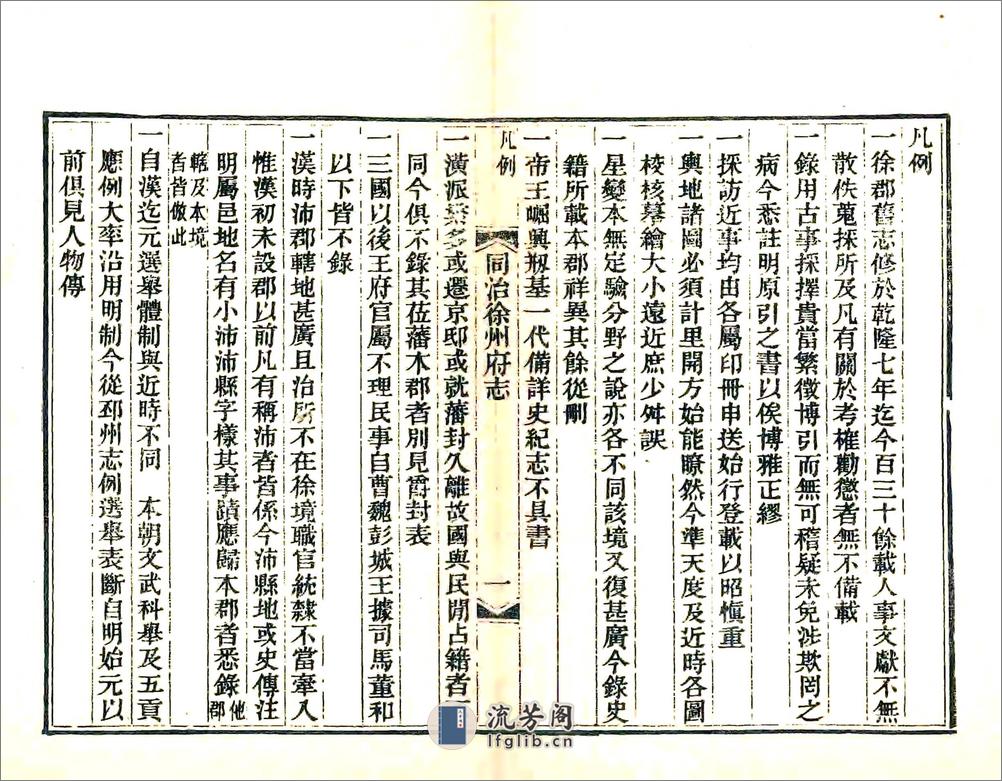 凡例
一徐郡舊志修於乾隆七年迄今百三十餘載人事文獻不無
散佚蒐採所及凡有關於考榷勸懲者無不備載
一錄用古事採擇貴當繁徵博引而無可稽疑未免涉欺罔之
病今悉註明原引之書以俟博雅正繆
一採訪近事均由各屬印冊申送始行登載以昭愼重
一輿地諸圖必須計里開方始能瞭然今準天度及近時各圖
校核摹繪大小遠近庶少舛誤
一星變本無定驗分野之說亦各不同該境又復甚廣今錄史
籍所載本郡祥異其餘從刪
一帝王崛興剏基一代備詳史紀志不具書
凡例
同治徐州府志
一
一潢派繁多或遷京邸或就藩封久離故國與民閒占籍者
同今俱不錄其莅藩本郡者別見爵封表
一三國以後王府官屬不理民事自曹魏彭城王據司馬董和
以下皆不錄
一漢時沛郡轄地甚廣且治所不在徐境職官統隸不當牽入
惟漢初未設郡以前凡有稱沛者皆係今沛縣地或史傳注
明屬邑地名有小沛沛縣字樣其事蹟應歸本郡者悉錄他郡
轄及本境者皆倣此
一自漢迄元選舉體制與近時不同 本朝文武科舉及五貢
應例大率沿用明制今從邳州志例選舉表斷自明始元以
前俱見人物傳
流芳阁
lfglib.cn